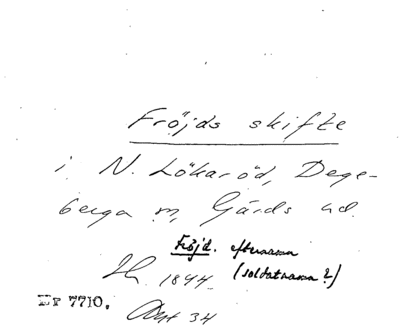 Fröjds skifte
i N. Lökaröd, Dege-
berga sn, Gärds hd.
Fröjd. efternamn
(soldatnamn?)
1844
Er 7710.
Avst 34